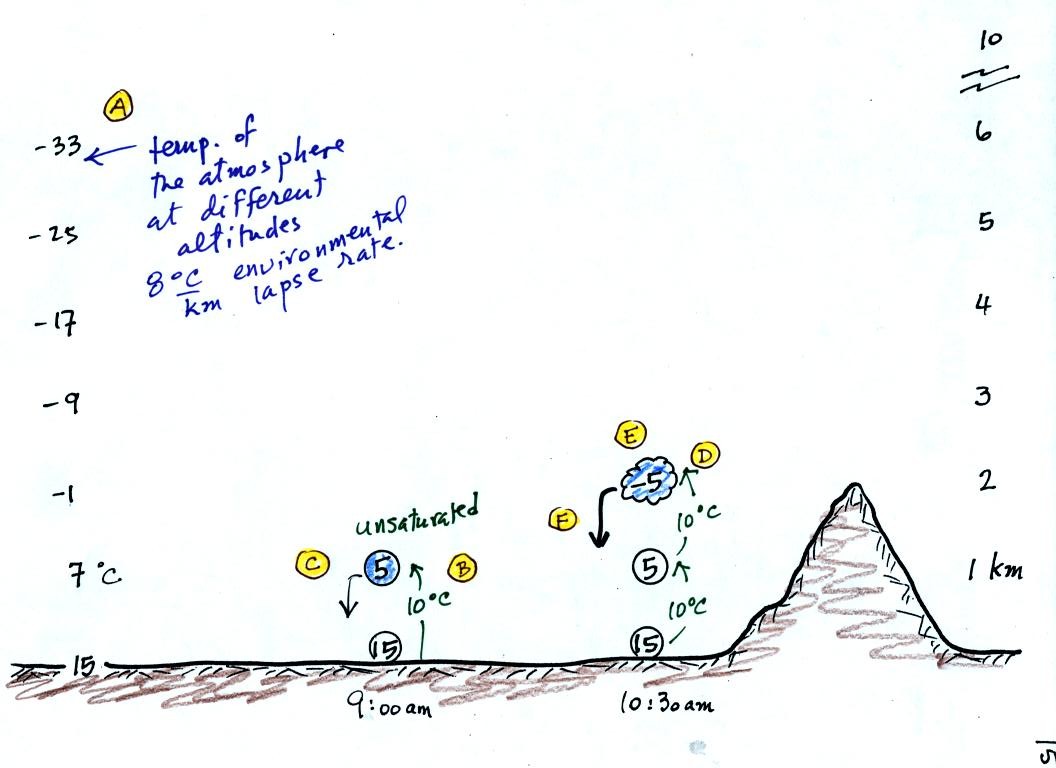 10
A
-33
temp. of
the atmosphere
at different
altitudes
8 °C/km environmental lapse rate.
6
-25
5
-17
4
-9
3
E
D
-1
-5
2
F
10°C
unsaturated
7 °C
C
5
B
5
1 km
10°C
10°C
15
15
15
9:00 am
10:30 am